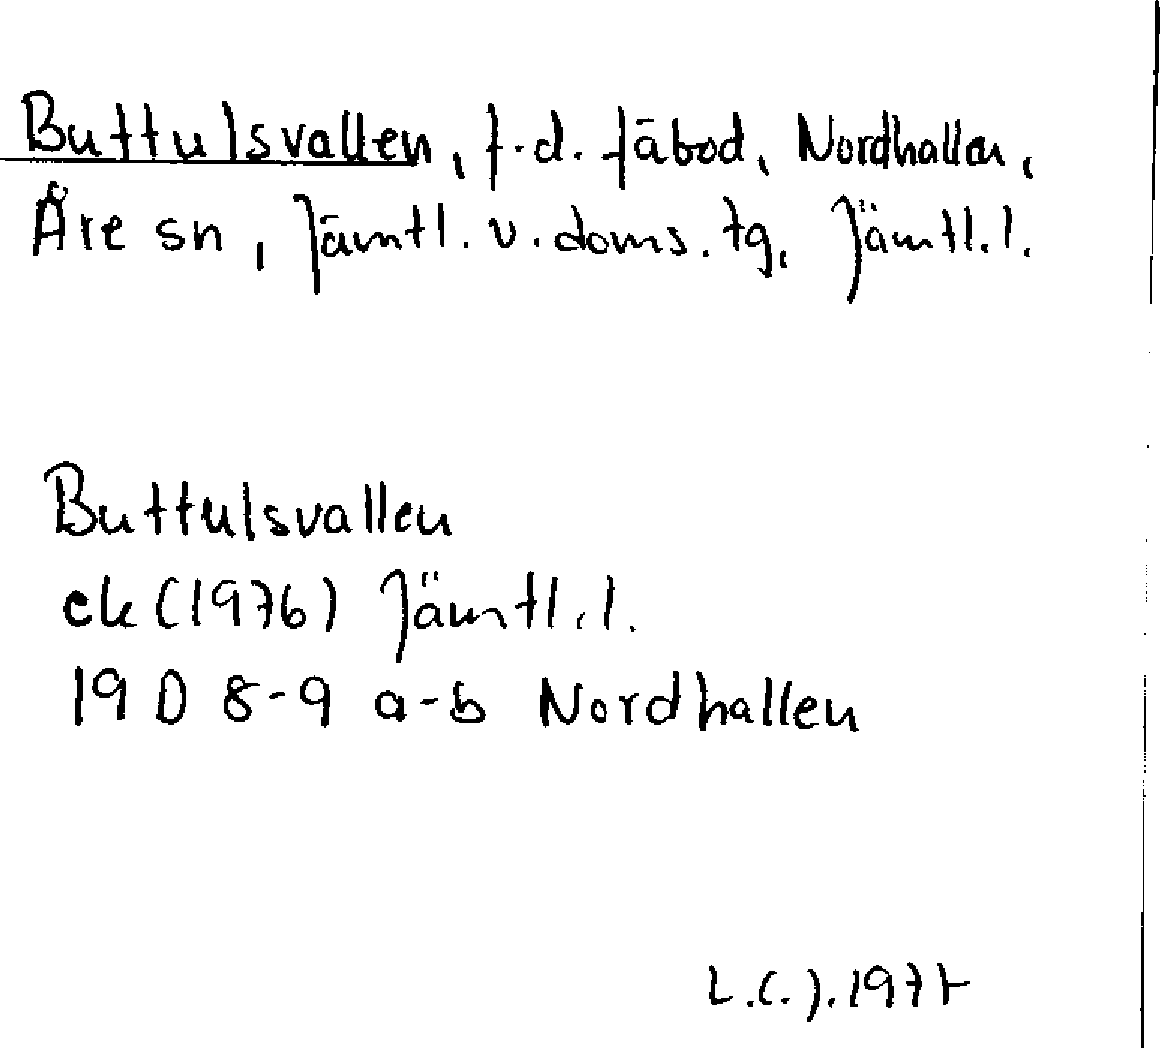 Buttulsvallen, f.d. fäbod, Nordhallen,
Åre sn, Jämtl. v. doms. tg, Jämtl. l.
Buttulsvallen
ek (1976) Jämtl. l.
19 D 8-9 a-b Nordhallen
L.C.J. 1977